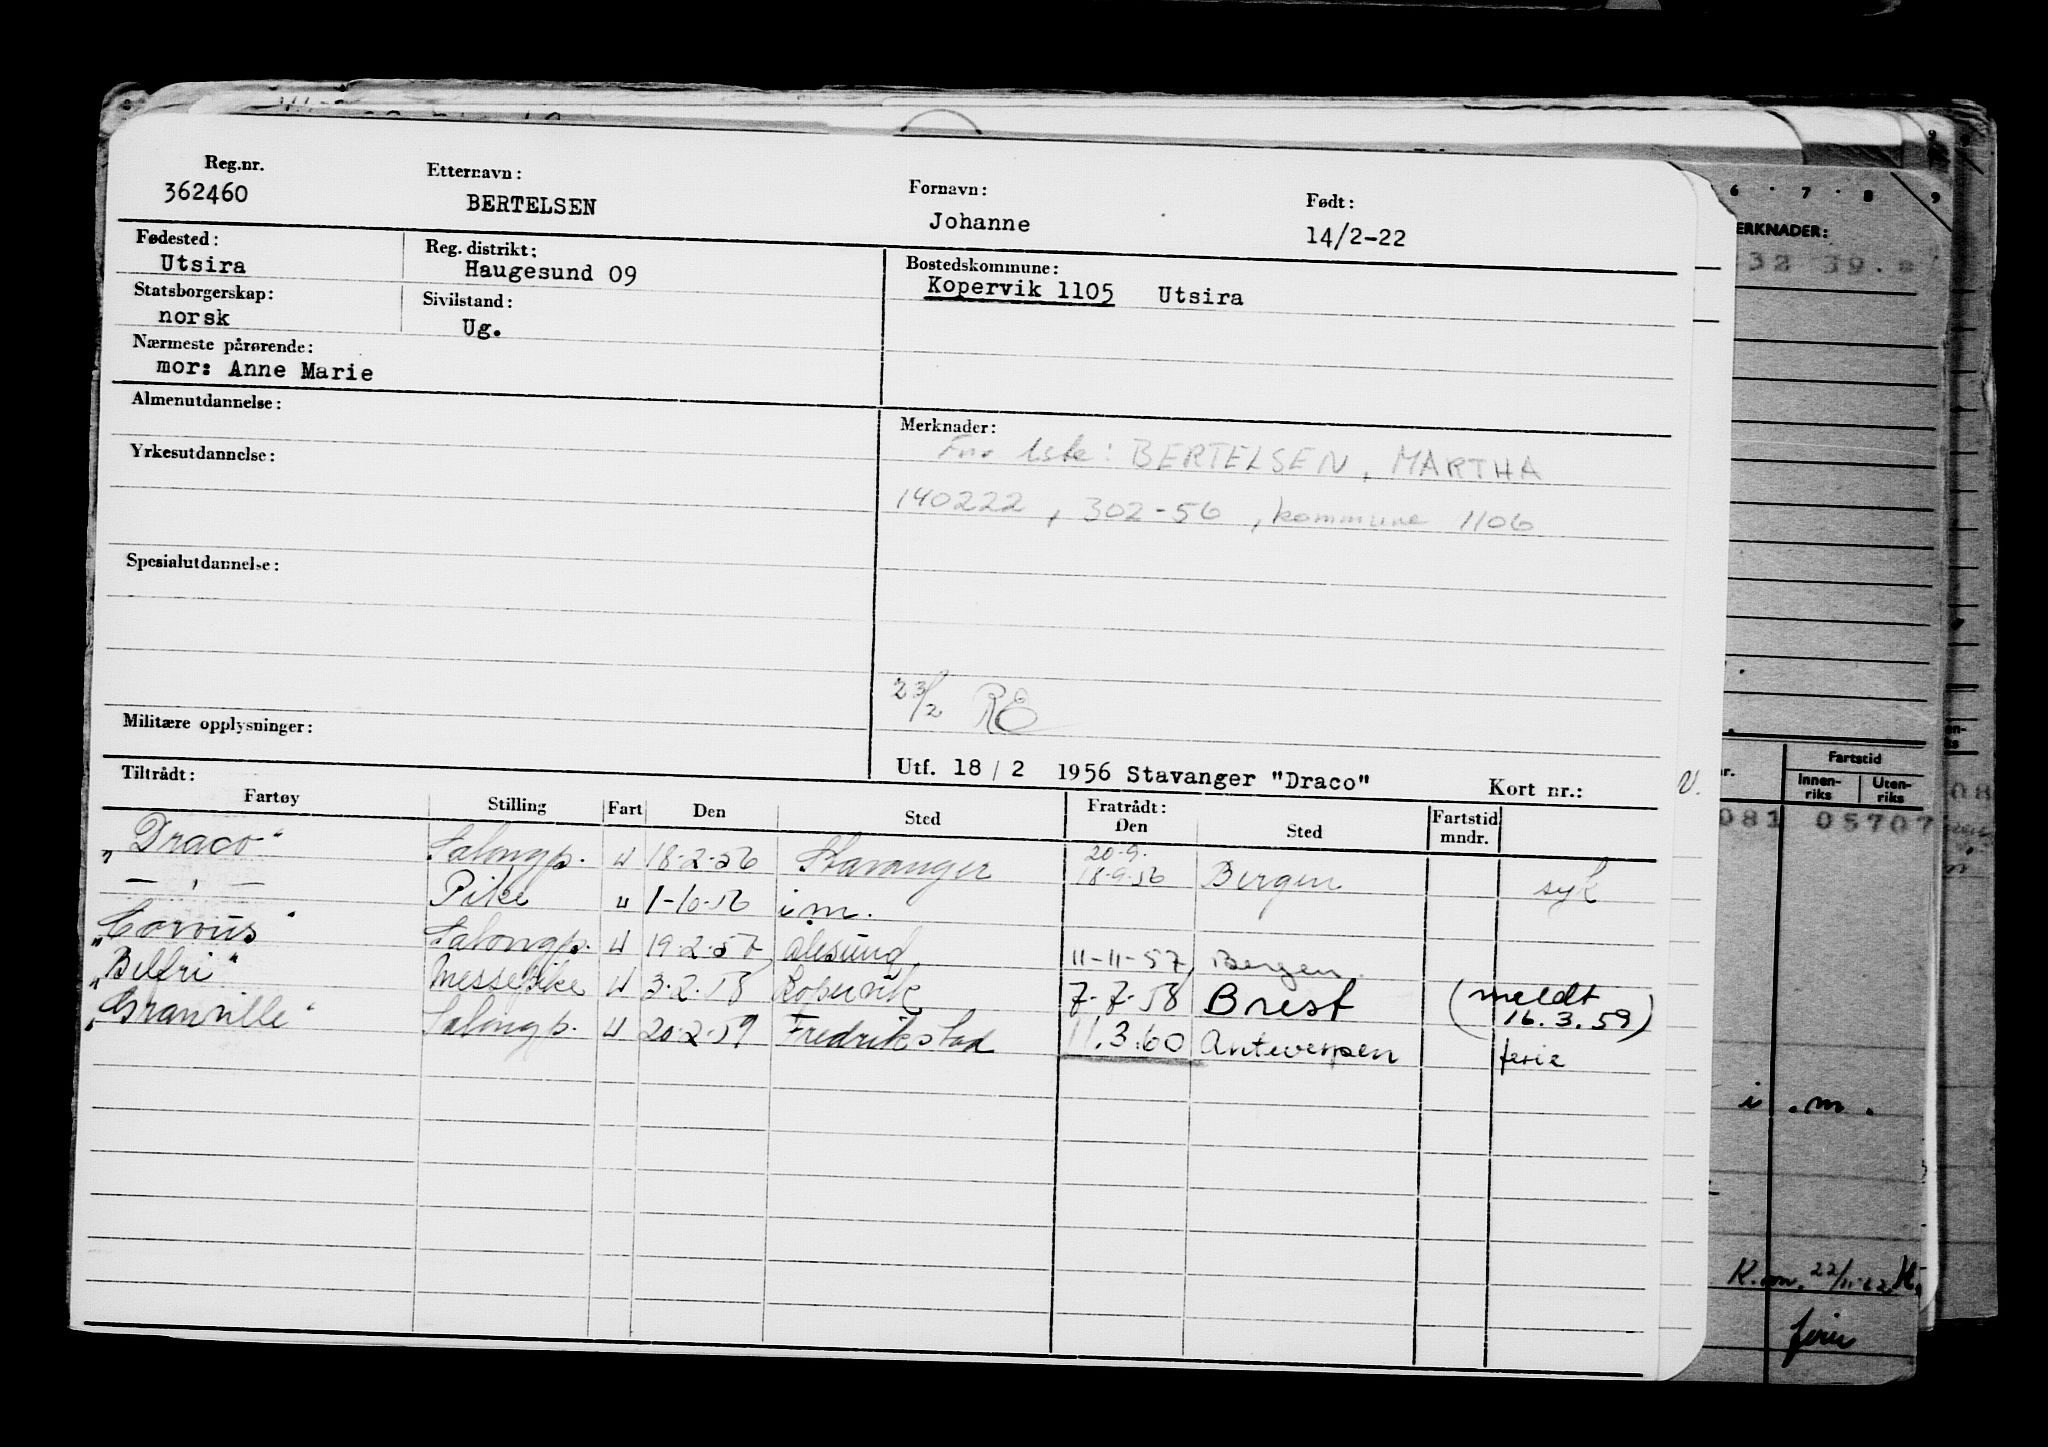 Reg.nr. Etternavn: Fornavn: Født:
362460 BERTELSEN Johanne 14/2-22
Fødested: Reg. distrikt: Bostedskommune:
Utsira Haugesund 09 Kopervik 1105 Utsira
Statsborgerskap: Sivilstand:
norsk Ug.
Nærmeste pårørende:
mor: Anne Marie
Almenutdannelse: Merknader:
liste: BERTELSEN, MARTHA
Yrkesutdannelse:
140222, 302-56, kommune 1106
Spesialutdannelse:
23/2
Militære opplysninger:
Utf. 18/2 1956 Stavanger "Draco" Kort nr.:
Tiltrådt: Fratrådt:
Fartøy Stilling Fart Den Sted Den Sted Fartstid mndr.
20-9-
"Draco" Salongp. u 18-2-56 Stavanger 18-9-56 Bergen syk
— " — Pike u 1-10-56 i.m.
"Corvus" Salongp. u 19-2-57 Ålesund 11-11-57 Bergen
"Belfri" Messepike u 3-2-58 Kopervik 7-7-58 Brest (meldt 16.3.59)
"Granville" Salongp. u 20-2-59 Fredrikstad 11.3.60 Antwerpen ferie
6 7 8 9
ERKNADER:
32 39.
Fartstid
nr. Innen-riks Uten-riks
081 05707
i.m.
22/11-62
ferie